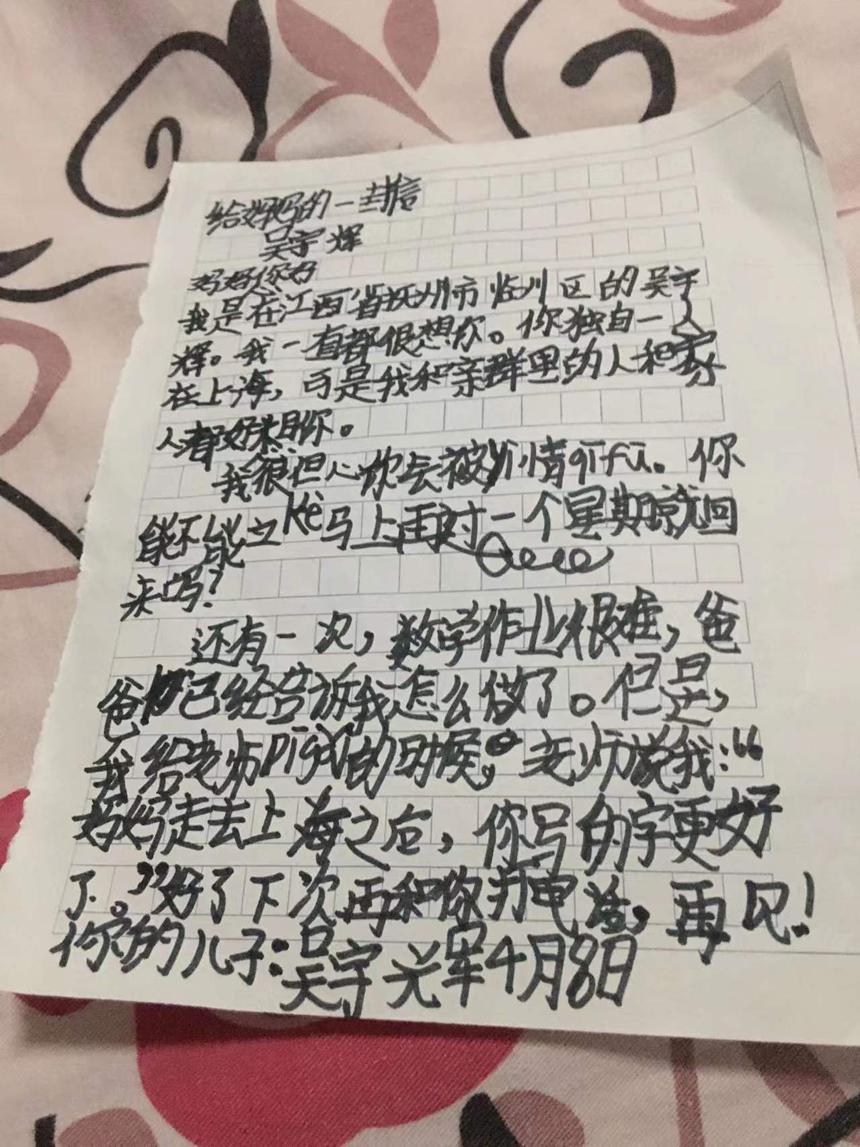 给妈妈的一封信
吴宇辉
妈妈你好
我是在江西省抚州市临川区的吴宇
辉。我一直都很想你。你独自一人
在上海，可是我和亲群里的人和家
人都好想你。
我很但心你会被疫情qīfu。你
能不能立kè马上再过一个星期就回
来吗？
还有一次，数学作业很难，爸
爸已经告诉我怎么做了。但是，
我给老师pīgǎi的时候，老师说我：“
妈妈走去上海之后，你写的字更好
了。”好了下次再和你打电话，再见！
你的儿子：吴宇辉4月8日